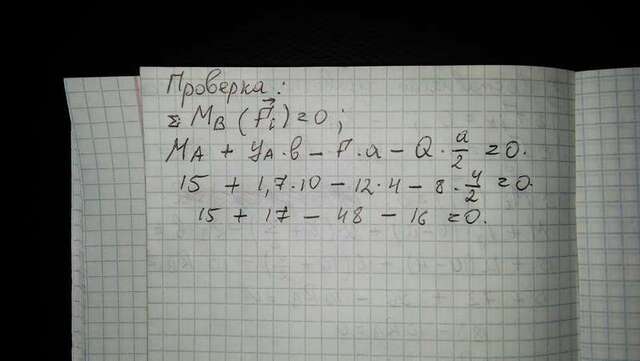 Проверка:
Σ M_B (F⃗i) = 0;
M_A + Y_A · в – F · a – Q · a/2 = 0.
15 + 1,7 · 10 – 12 · 4 – 8 · 4/2 = 0.
15 + 17 – 48 – 16 = 0.